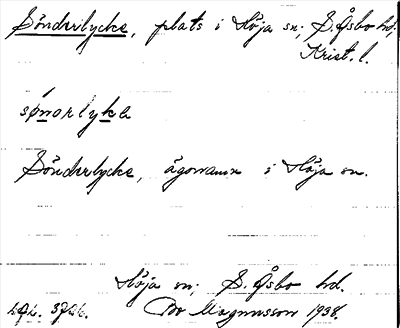 Sönderlycke, plats i Höja sn; S. Åsbo hd;
Krist. l.
sø̀norlykə
Sönderlycke, ägonamn i Höja sn.
Höja sn; S. Åsbo hd.
Bo Magnusson 1938.